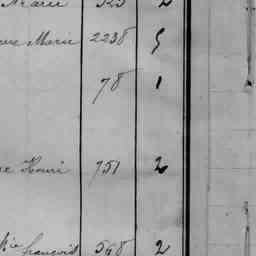 Marie 525 2
Marie 2238 5
78 1
Henri 751 2
françois 568 2